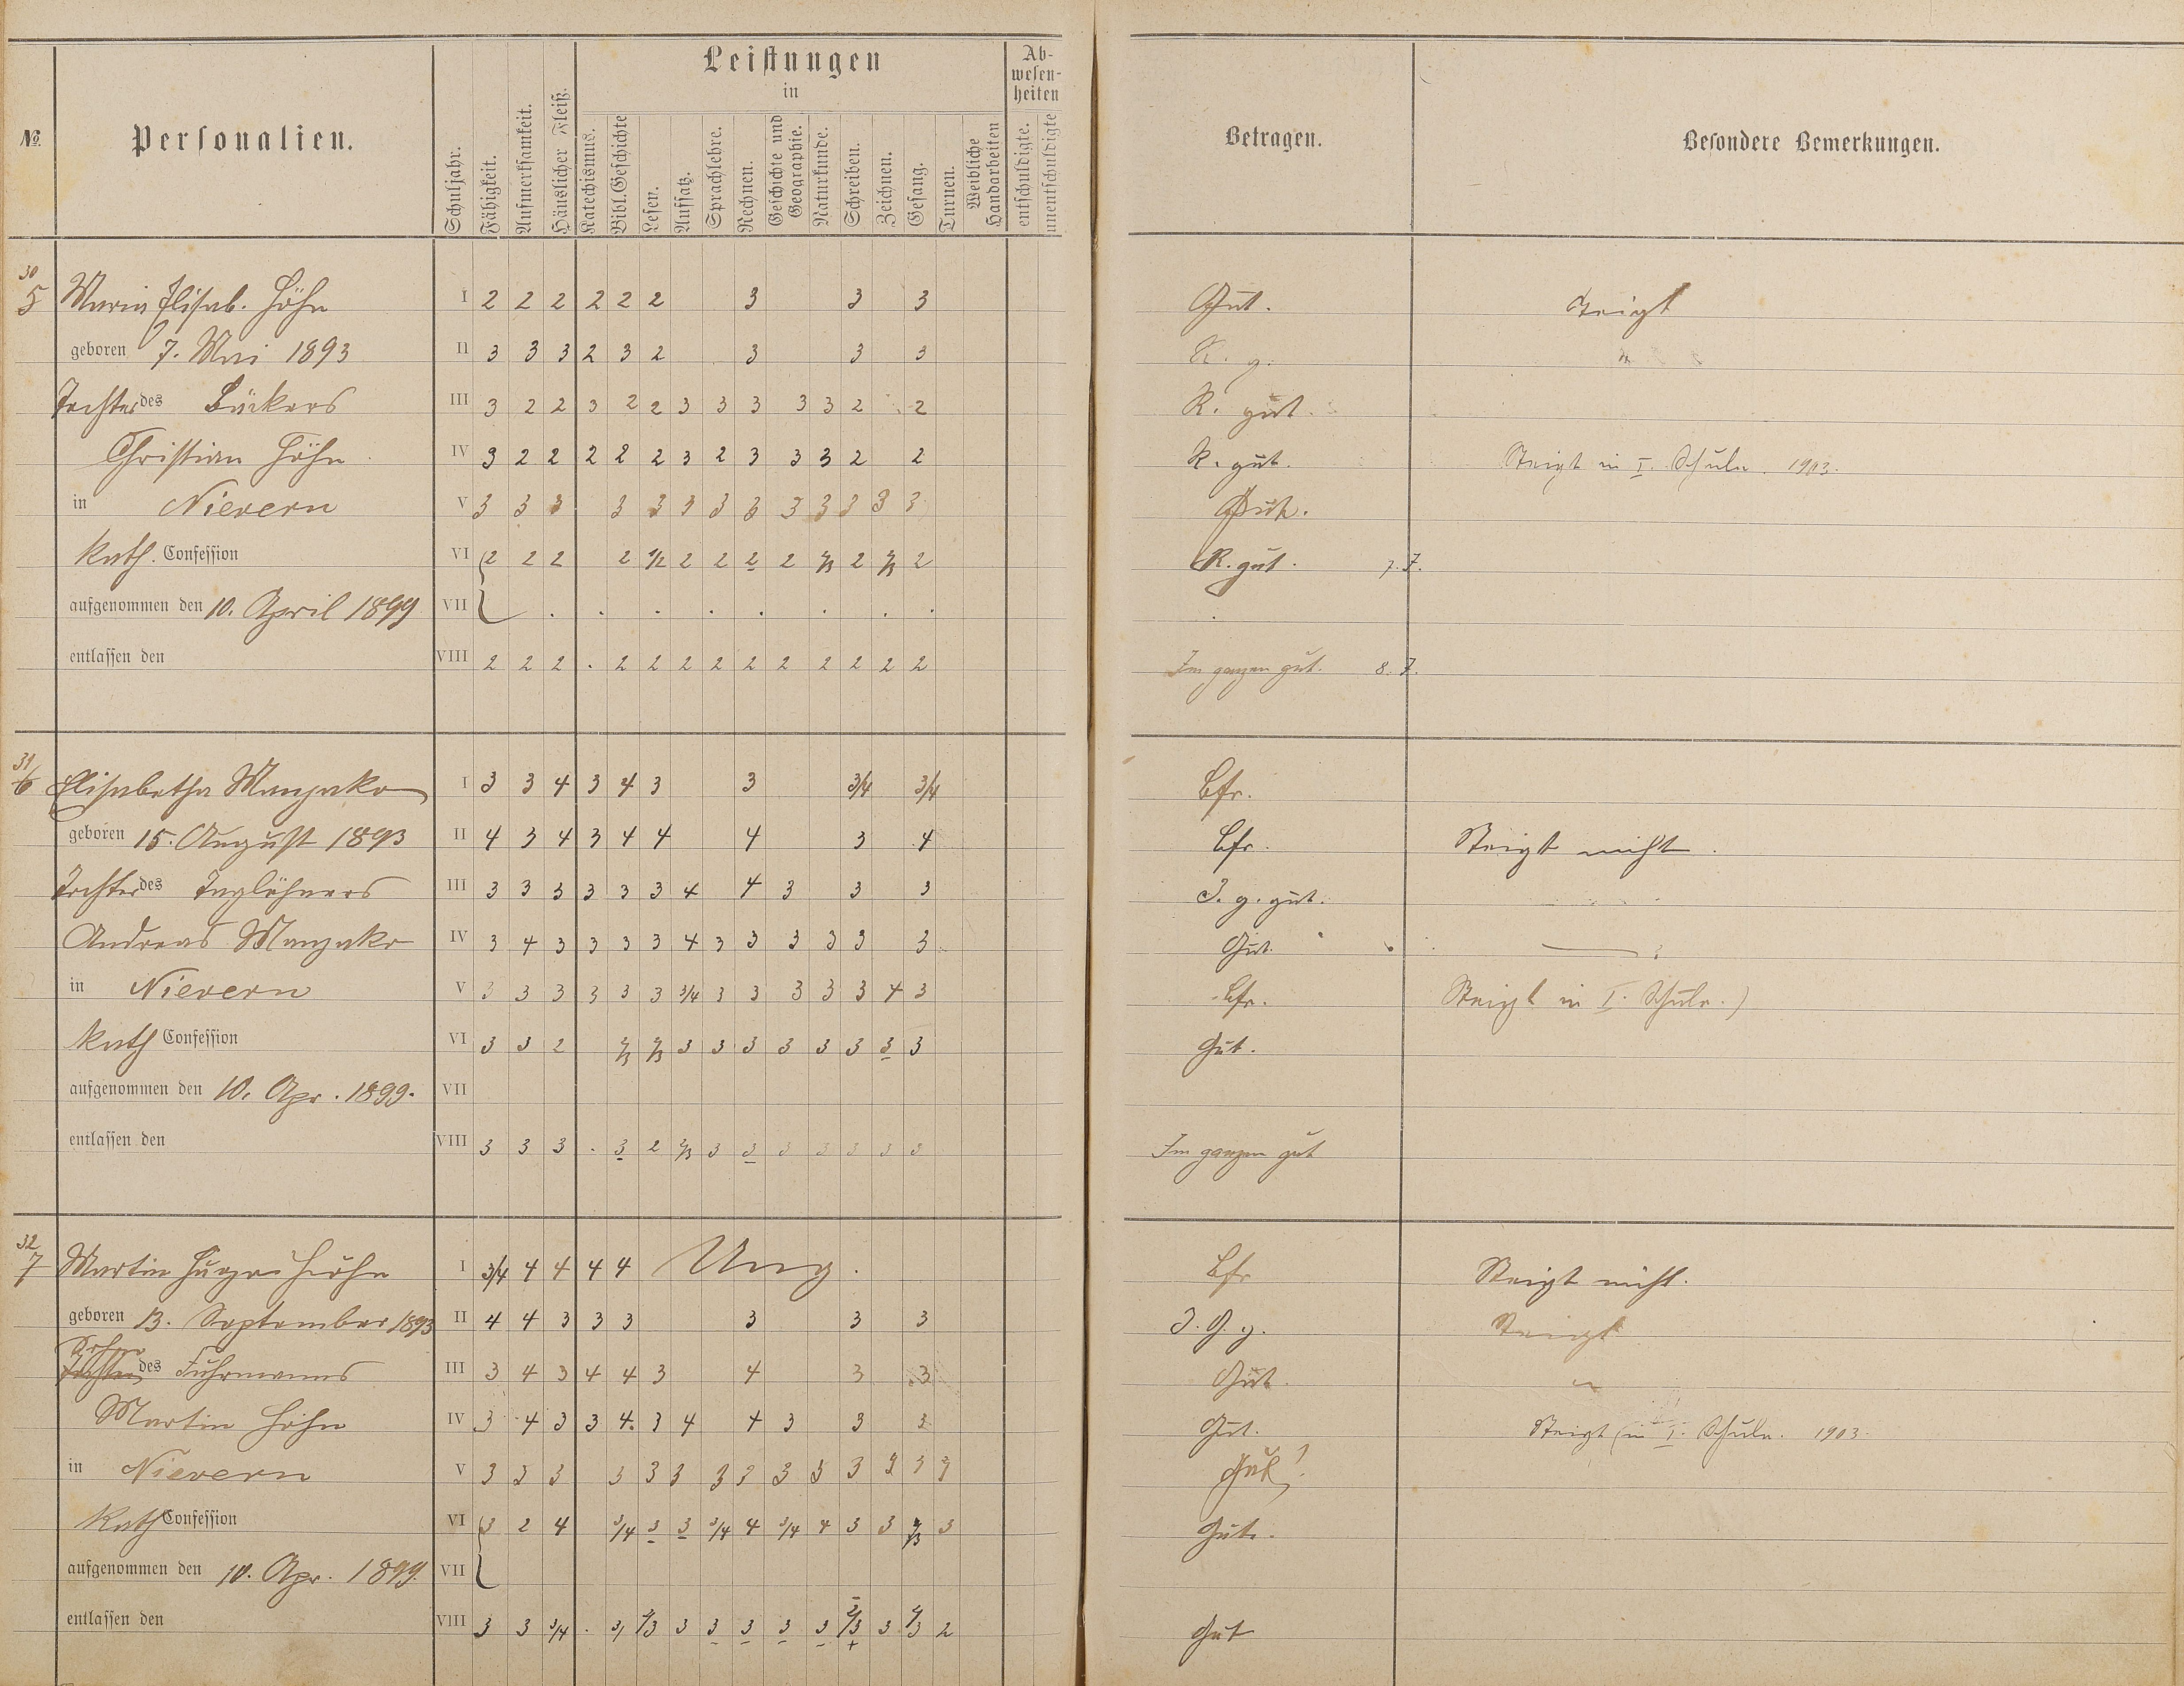 Leistungen
in
Ab-
wesen-
heiten
№
Personalien.
Schuljahr.
Fähigkeit.
Aufmerksamkeit.
Häuslicher Fleiß.
Katechismus.
Bibl. Geschichte
Lesen.
Aufsatz.
Sprachlehre.
Rechnen.
Geschichte und
Geographie.
Naturkunde.
Schreiben.
Zeichnen.
Gesang.
Turnen.
Weibliche
Handarbeiten
entschuldigte.
unentschuldigte
Betragen.
Besondere Bemerkungen.
30
5 Maria Elisab. Höhn I 2 2 2 2 2 2 3 3 3 Gut. Steigt
geboren 7. Mai 1893 II 3 3 3 2 3 2 3 3 3 R. g. "
Tochter des Bäckers III 3 2 2 3 2 2 3 3 3 3 3 2 2 R. gut.
Christian Höhn IV 3 2 2 2 2 2 3 2 3 3 3 2 2 R. gut. Steigt in I. Schule. 1903.
in Nievern V 3 3 3 3 3 3 3 3 3 3 3 3 3 Gut.
Kath. Confession VI 2 2 2 2 1/2 2 2 2 2 2/3 2 2/3 2 R. gut. 7. J.
aufgenommen den 10. April 1899 VII
entlassen den VIII 2 2 2 . 2 2 2 2 2 2 2 2 2 2 Im ganzen gut. 8. J.
31
6 Elisabetha I 3 3 4 3 4 3 3 3/4 3/4 Bfr.
geboren 15. August 1893 II 4 3 4 3 4 4 4 3 4 Bfr. Steigt nicht.
Tochter des Taglöhners III 3 3 3 3 3 3 4 4 3 3 3 I. g. gut.
Andreas IV 3 4 3 3 3 3 4 3 3 3 3 3 3 Gut.
in Nievern V 3 3 3 3 3 3 3/4 3 3 3 3 3 4 3 Bfr. Steigt in I. Schule.)
Kath Confession VI 3 3 2 2/3 2/3 3 3 3 3 3 3 3 3 Gut.
aufgenommen den 10. Apr. 1899. VII
entlassen den VIII 3 3 3 . 3 2 2/3 3 3 3 3 3 3 3 Im ganzen gut
32
7 Martin Höhn I 3/4 4 4 4 4 Ung. Bfr Steigt nicht.
geboren 13. September 1893 II 4 4 3 3 3 3 3 3 I. G. g. Steigt
Sohn
Tochter des Fuhrmanns III 3 4 3 4 4 3 4 3 3 Gut. "
Martin Höhn IV 3 4 3 3 4. 3 4 4 3 3 3 Gut. Steigt in I. Schule. 1903.
in Nievern V 3 3 3 3 3 3 3 3 3 3 3 3 3 3 Gut!
Kath Confession VI 3 2 4 3/4 3 3 3/4 4 3/4 4 3 3 2/3 3 Gut.
aufgenommen den 10. Apr. 1899. VII
entlassen den VIII 3 3 3/4 . 2/3 3 3 3 3 3 2/3 3 2/3 2 Gut